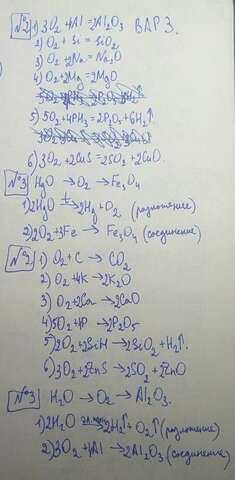 №2 1) 3O₂ + 4Al = 2Al₂O₃ ВАР 3.
2) O₂ + Si = SiO₂
3) O₂ + 2Na = Na₂O
4) O₂ + 2Mg = 2MgO
5) 5O₂ + 4PH₃ = 2P₂O₅ + 6H₂↑
6) 3O₂ + 2CuS = 2SO₂ + 2CuO.
№3 HgO → O₂ → Fe₃O₄
1) 2HgO →ᵗ 2Hg + O₂ (разложение)
2) 2O₂ + 3Fe → Fe₃O₄ (соединение)
№2 1) O₂ + C → CO₂
2) O₂ + 4K → 2K₂O
3) O₂ + 2Ca → 2CaO
4) 5O₂ + 4P → 2P₂O₅
5) 2O₂ + 2SiH → 2SiO₂ + H₂↑.
6) 3O₂ + 2ZnS → 2SO₂ + 2ZnO
№3 H₂O → O₂ → Al₂O₃.
1) 2H₂O → 2H₂↑ + O₂↑ (разложение)
2) 3O₂ + 4Al → 2Al₂O₃ (соединение)